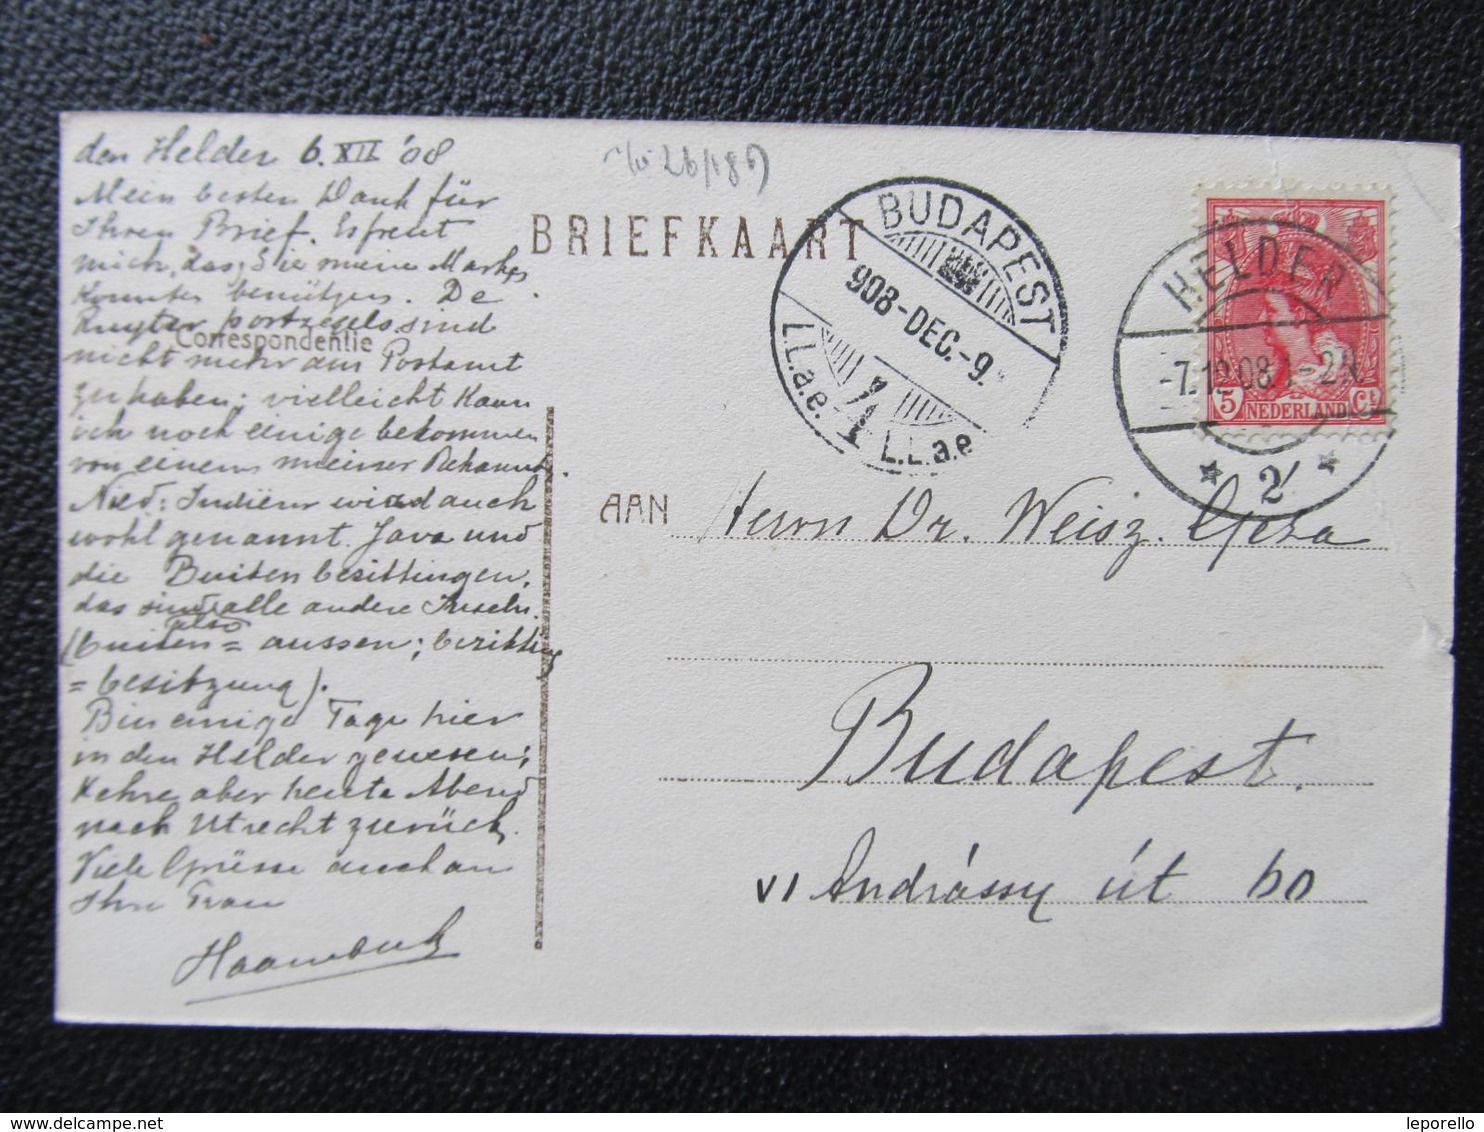 den Helder 6. XII '08
Mein besten Dank für
Ihren Brief. Es freut
mich, dass Sie meine Marken
konnten benützen. De
Ruyter portzegels sind
nicht mehr am Postamt
zu haben; vielleicht kann
ich noch einige bekommen
von einem meiner Bekannt.
Ned: Indiën wird auch
wohl genannt Java und
die Buiten besittingen,
das sind alle andere Inseln.
also
(buiten = aussen; bezitting
= besitzung).
Bin einige Tage hier
in den Helder gewesen;
Kehre aber heute Abend
nach Utrecht zurück.
Viele Grüsse auch an
Ihre Frau
Correspondentie
BRIEFKAART
BUDAPEST
908-DEC.-9.
L.L.a.e. L.L.a.e
HELDER
-7.12.08.1-2N
2
5 NEDERLAND Ct
AAN
Herrn Dr. Weisz. Géza
Budapest.
VI Andrássy út 60
leporello